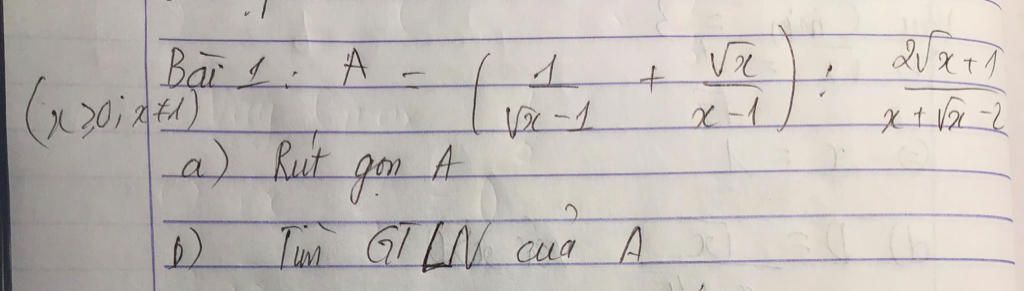 Bài 1 : A = (1/(√x - 1) + √x/(x - 1)) : (2√x + 1)/(x + √x - 2)
(x ≥ 0; x ≠ 1)
a) Rút gọn A
b) Tìm GTLN của A